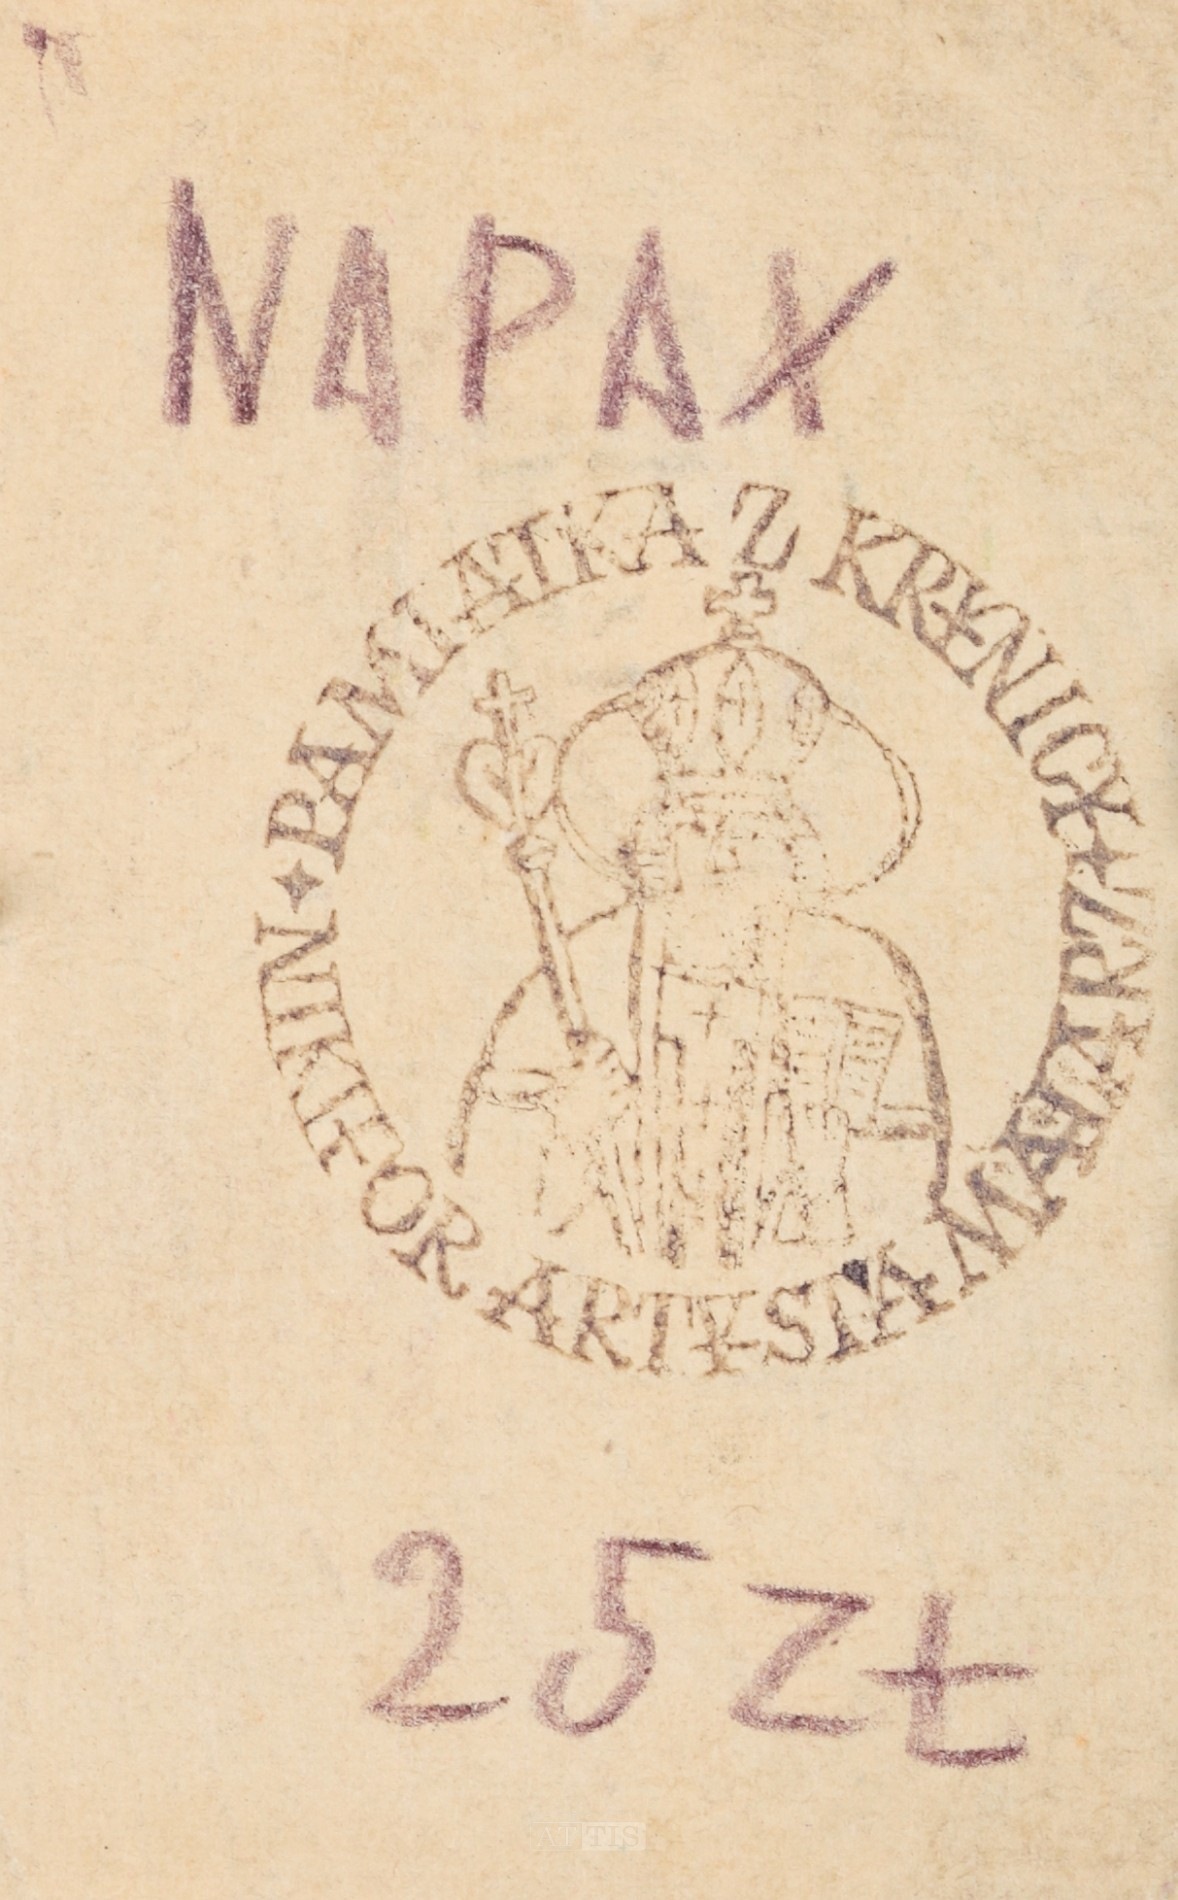 NAPAX
PAMIATKA Z KRYNICY
NIKIFOR ARTYSTA MALARZ
25 Zł